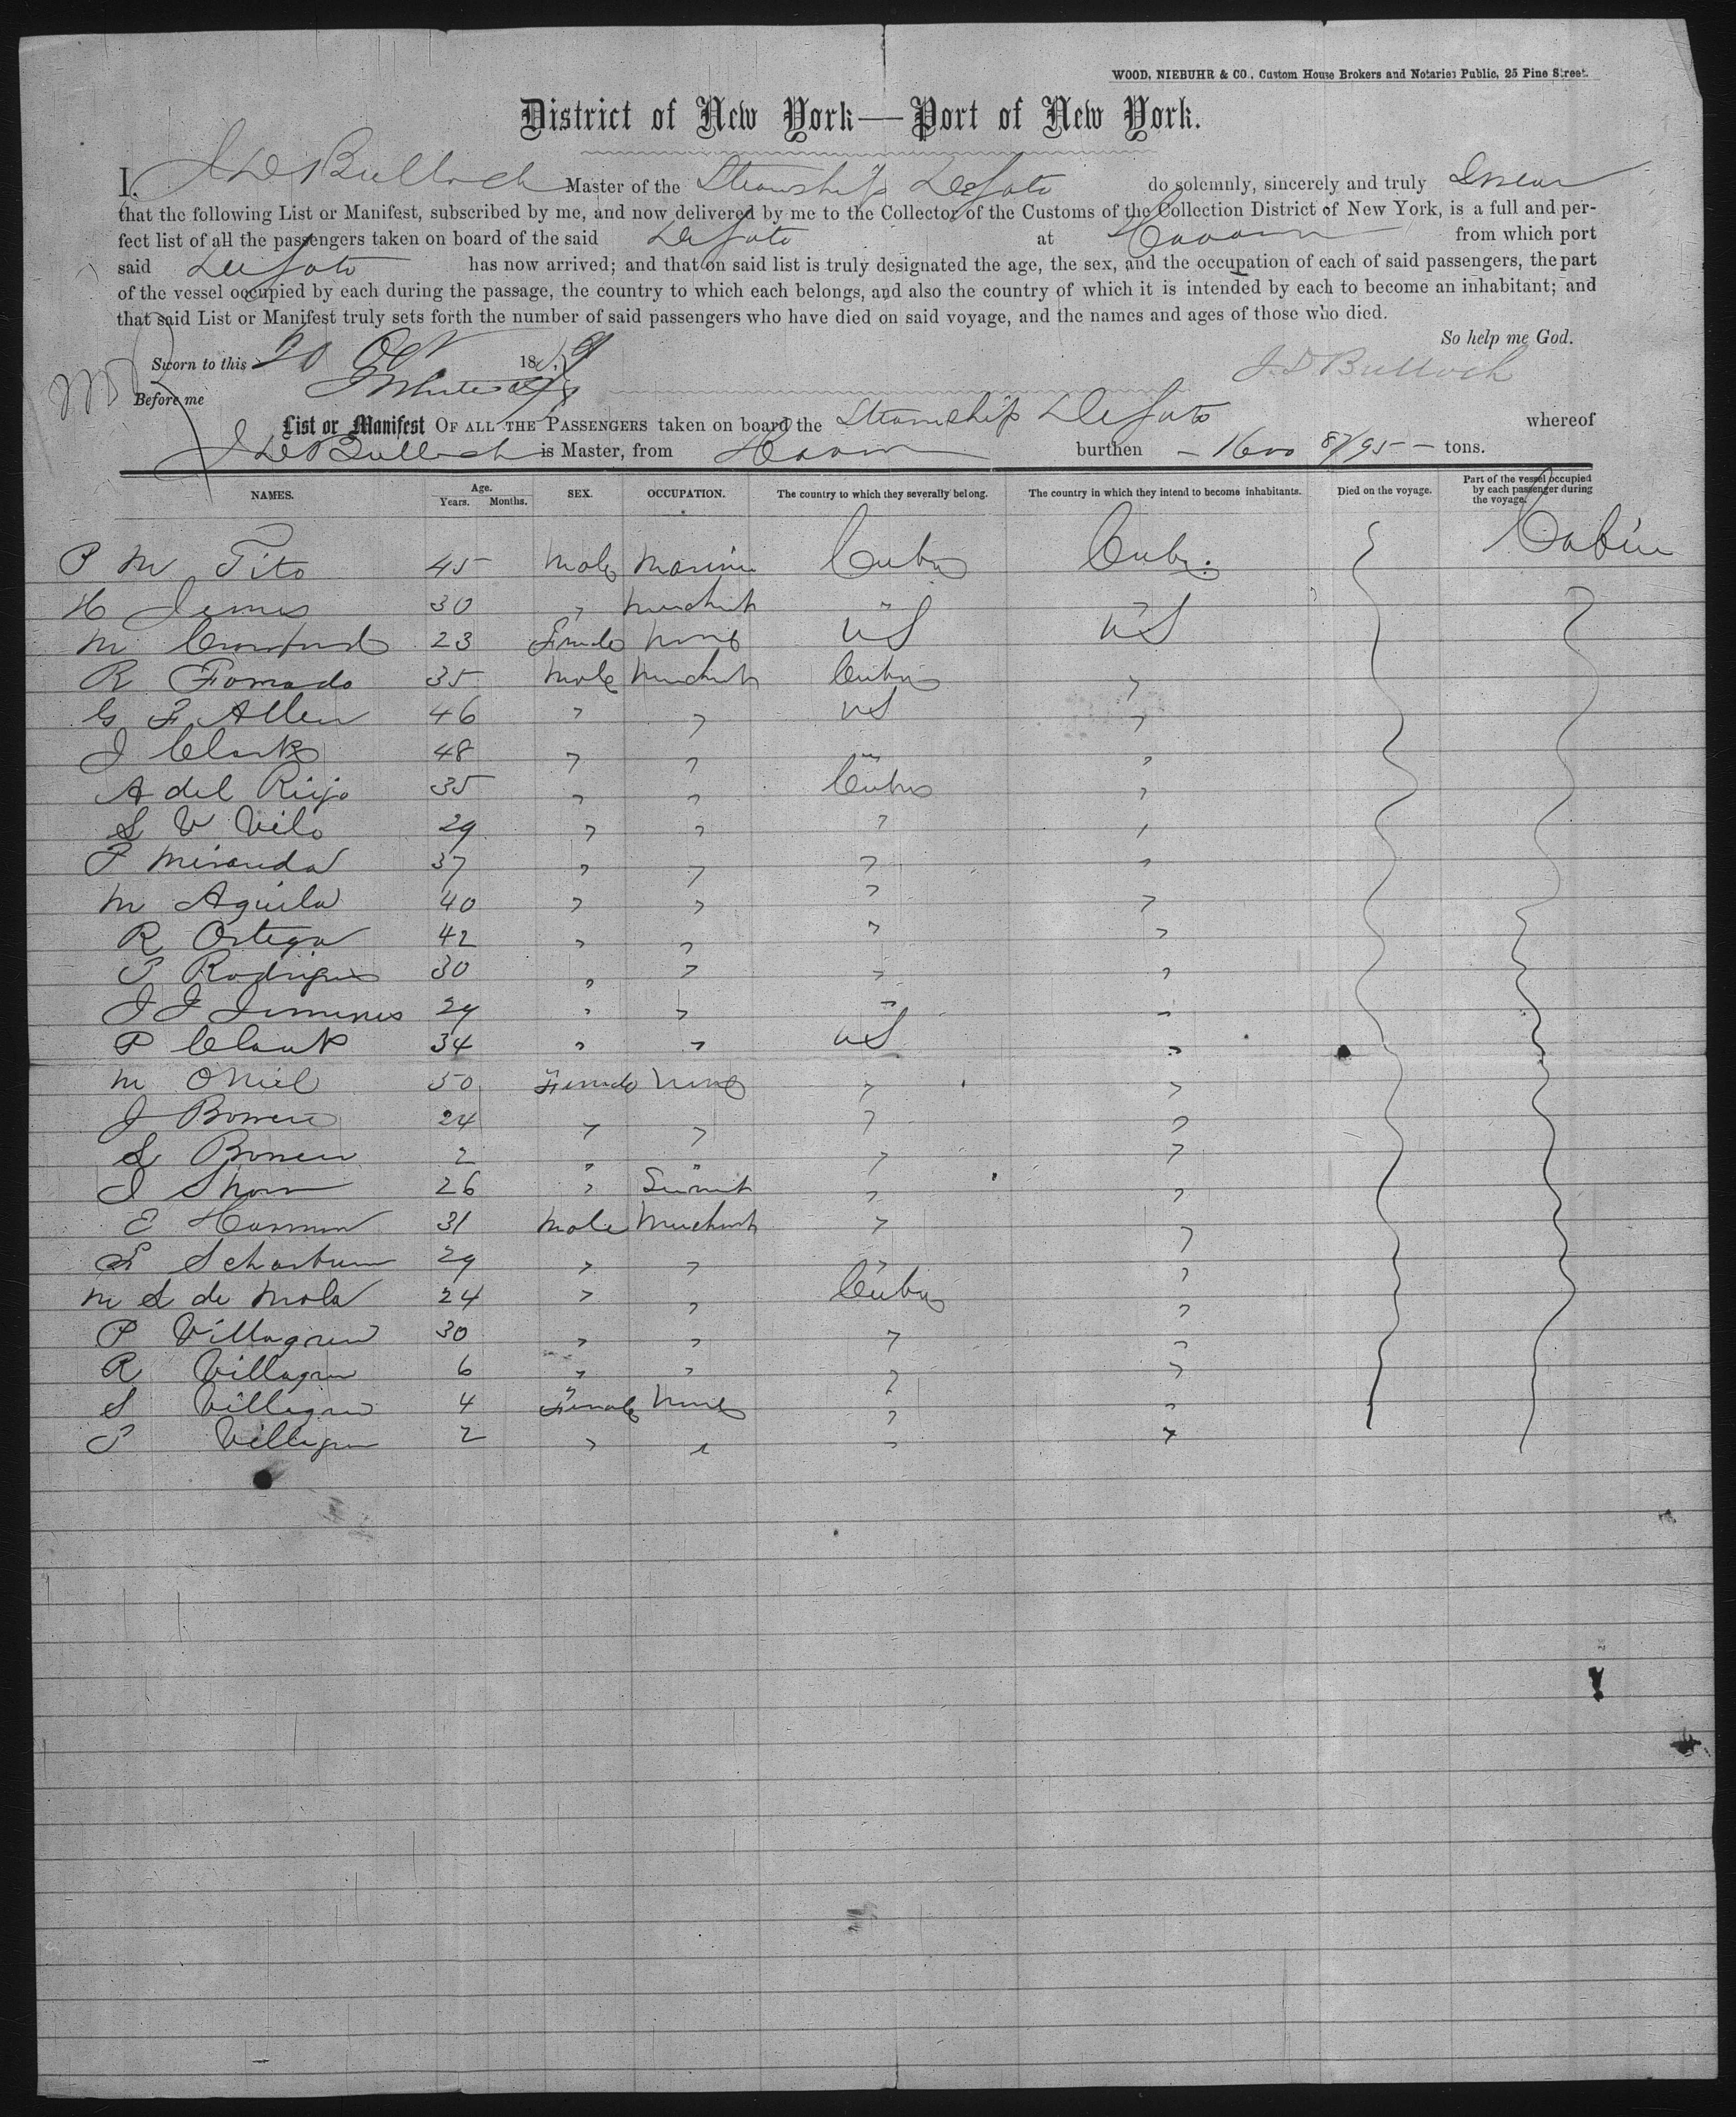 WOOD, NIEBUHR & CO., Custom House Brokers and Notaries Public, 25 Pine Street.
District of New York—Port of New York.
I, J D Bulloch Master of the Steamship DeSoto do solemnly, sincerely and truly Swear
that the following List or Manifest, subscribed by me, and now delivered by me to the Collector of the Customs of the Collection District of New York, is a full and per-
fect list of all the passengers taken on board of the said DeSoto at Havana from which port
said DeSoto has now arrived; and that on said list is truly designated the age, the sex, and the occupation of each of said passengers, the part
of the vessel occupied by each during the passage, the country to which each belongs, and also the country of which it is intended by each to become an inhabitant; and
that said List or Manifest truly sets forth the number of said passengers who have died on said voyage, and the names and ages of those who died.
So help me God.
Sworn to this 20 Oct 1859 J. D Bulloch
Before me
List or Manifest OF ALL THE PASSENGERS taken on board the Steamship DeSoto whereof
J D Bulloch is Master, from Havana burthen – 1600 87/95 – tons.
NAMES. Age. Years. Months. SEX. OCCUPATION. The country to which they severally belong. The country in which they intend to become inhabitants. Died on the voyage. Part of the vessel occupied by each passenger during the voyage.
P M Tito 45 Male Marine Cuba Cuba. Cabin
H James 30 " Merchant " "
M Crawford 23 Female None US US
R Fomado 35 Male Merchant Cuba "
G F Allen 46 " " US "
J Clark 48 " " " "
A del Rijo 35 " " Cuba "
S V Vilo 29 " " " "
P Miranda 37 " " " "
M Aguila 40 " " " "
R Ortega 42 " " " "
P Rodrigues 30 " " " "
J J Jimenes 29 " " " "
P Clark 34 " " US "
M ONeil 50 Female None " "
J Bowen 24 " " " "
S Bowen 2 " " " "
J Shaw 26 " Servant " "
E Hamman 31 Male Merchant " "
S Scharbum 29 " " " "
M S de Mola 24 " " Cuba "
P Villagren 30 " " " "
R Villagren 6 " " " "
S Villagren 4 Female None " "
P Villagren 2 " " " "